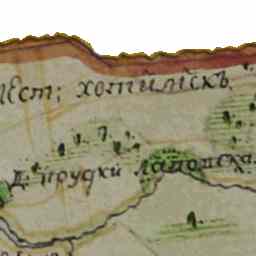 мест: хотимскъ
Д: прудки лаповска